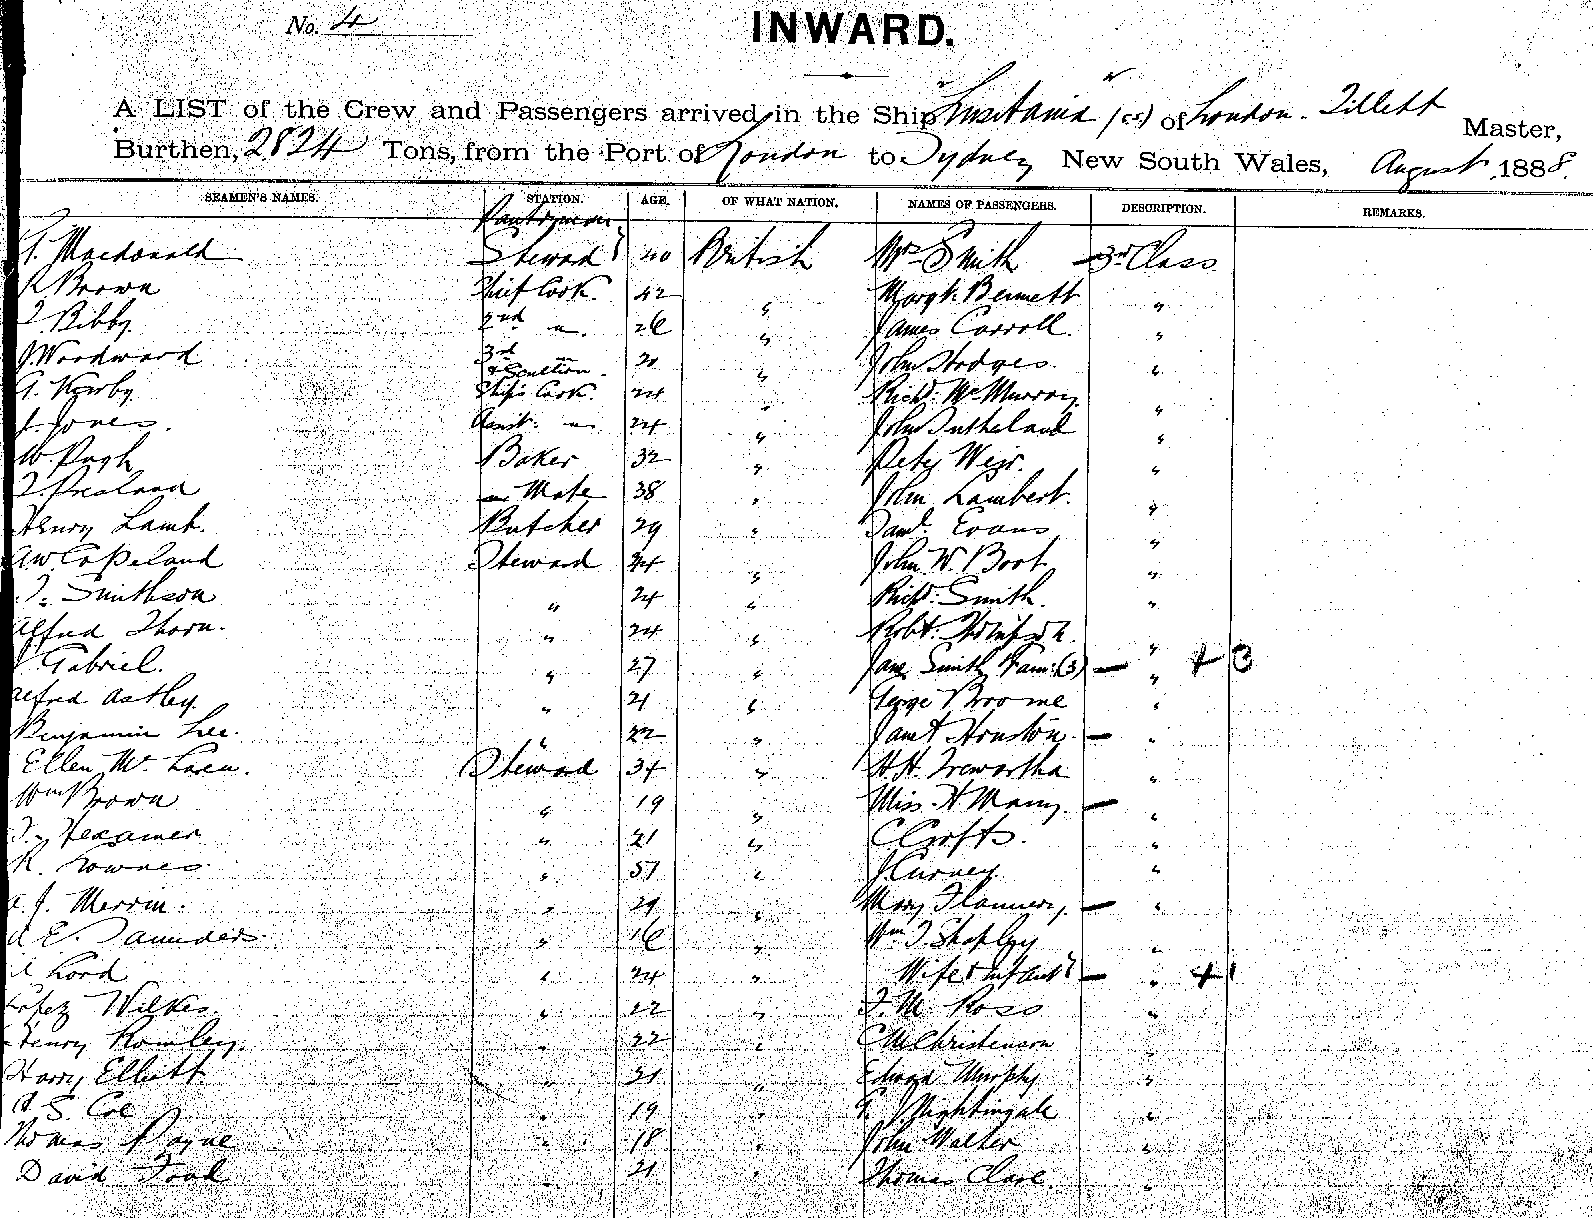 No. 4
INWARD.
A LIST of the Crew and Passengers arrived in the Ship "Lusitania" (ss) of London. Tillett Master,
Burthen, 2824 Tons, from the Port of London to Sydney New South Wales, August 1888.
SEAMEN'S NAMES. STATION. AGE. OF WHAT NATION. NAMES OF PASSENGERS. DESCRIPTION. REMARKS.
Pantryman
Macdonald Steward 40 British Mrs Smith 3rd Class
R Brown Chief Cook. 42 " Margt. Bennett "
T Bibby 2nd " 26 " James Carroll. "
J. Woodward 3rd " 20 " John Hodges. "
& Scullion.
A. Kirby Ship's Cook. 24 " Richd. McMurray. "
J. Jones. Assist. " 24 " John Sutherland "
W Pugh Baker 32 " Peter Weir. "
T. " Mate 38 " John Lambert. "
Henry Lamb. Butcher 29 " Evans "
AW Copeland Steward 24 " John W. Boot "
T. Smithson " 24 " Richd. Smith. "
Alfred Thorn. " 24 " Robt. "
J Gabriel. " 27 " Jane Smith & Fam: (3) — " + 3
Alfred Astley. " 21 " George Broome "
Benjamin Lee. " 22 " Janet Houston. — "
Ellen Mc Laren. Steward 34 " H. H. Trewartha "
Wm Brown " 19 " Miss H Many. — "
T. Hexamer " 21 " C Crofts. "
R. Townes " 51 " J Curvey. "
A. J. Merrin. " 29 " Mary Flannery. — "
A E. Saunders. " 16 " Wm T. Shapley "
A Lord " 24 " Wife & Infant — " + 1
Wilkes. " 22 " T. M. Ross "
Henry Rowley. " 22 " C M Christenson "
Harry Elliott " 21 " Edward Murphy "
A. S. Coe " 19 " G. Nightingale "
Thomas Payne " 18 " John Walter "
David Ford " 21 " Thomas Clare. "